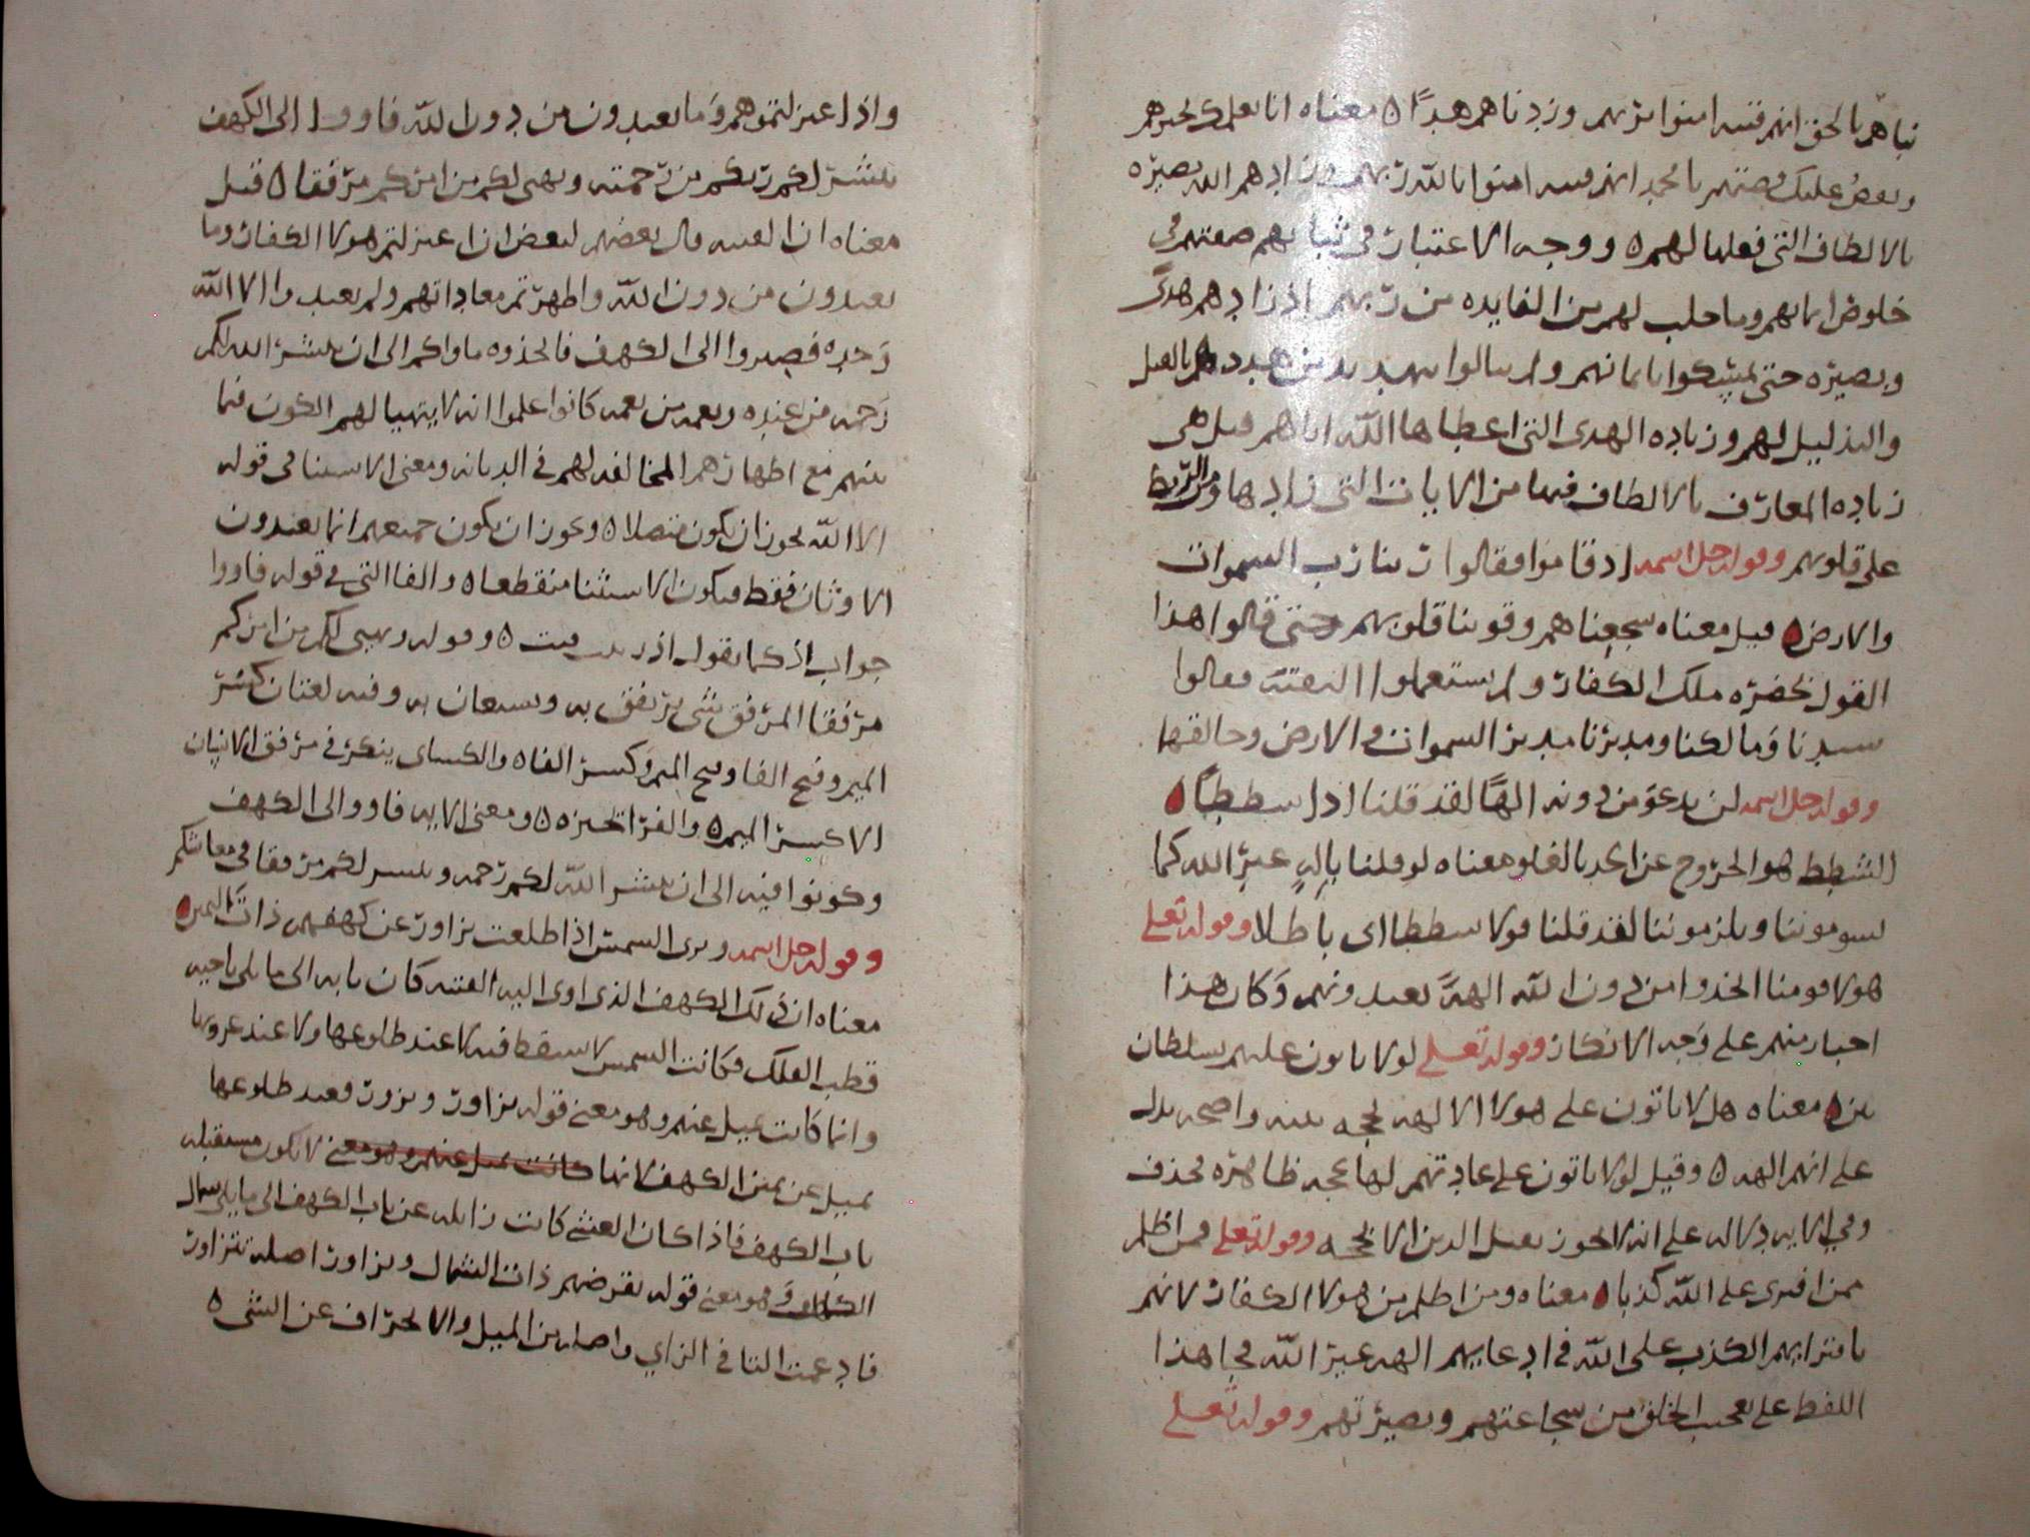 نباهم بالحق انهم فتيه امنوا بربهم وزدناهم هدًا ٥ معناه انا نعلمك بخبرهم
ونقصُ عليك قصتهم يا محمد انهم فتيه امنوا بالله ربهم وزادهم الله بصيره
بالالطاف التي فعلها لهم ٥ ووجه الاعتبار في ثباتهم صفتهم في
خلوص ايمانهم وما جلب لهم من الفايده من ربهم اذ زادهم هدًى
وبصيره حتى تمسكوا بايمانهم ولم يبالوا بتهديد من هددهم بالقتل
والتذليل لهم وزياده الهدى التي اعطاها الله اياهم قيل هي
زياده المعارف بالالطاف فيها من الايات التي زادها ومن الربط
على قلوبهم وقوله جل اسمه اذ قاموا فقالوا ربنا رب السموات
والارض ٥ قيل معناه شجعناهم وقوينا قلوبهم حتى قالوا هذا
القول بحضره ملك الكفار ولم يستعملوا التقيه فقالوا
سيدنا وَمالكنا ومدبرنا مدبر السموات والارض وخالقها
وقوله جل اسمه لن ندعوَ من دونه الهًا لقد قلنا اذا شططًا ٥
الشطط هو الخروج عن الحد بالغلو معناه لو قلنا بالهٍ غير الله كما
تسوموننا وتلزموننا لقد قلنا قولا شططا اي باطلا وقوله تعلى
هولا قومنا اتخذوا من دون الله الهةً يعبدونهم وَكان هذا
اخبار منهم على وَجه الانكار وقوله تعلى لولا ياتون عليهم بسلطان
بين ٥ معناه هل لا ياتون على هولا الالهه بحجه بينه واضحه يدل
على انهم الهه ٥ وقيل لولا ياتون على عبادتهم لها بحجه ظاهره فحذف
وفي الايه دلاله على انه لا يجوز تقبل الدين الا بحجه وقوله تعلى فمن اظلم
ممن افترى على الله كذبا ٥ معناه ومن اظلم من هولا الكفار لانهم
بافترايهم الكذب على الله في ادعايهم الهه غير الله فجا هذا
اللفظ على تعجيب الخلق من شجاعتهم وبصيرتهم وقوله تعلى
واذا عتزلتموهم وَما يعبدون من دون الله فاووا الى الكهف
ينشر لكم ربكم من رحمته ويهى لكم من امركم مرفقا ٥ قيل
معناه ان الفتيه قال بعضهم لبعض اذا عتزلتم هولا الكفار وما
يعبدون من دون الله واظهرتم معاداتهم ولم تعبدوا الا الله
وَحده فصيروا الى الكهف فاتخذوه ماواكم الى ان ينشر الله لكم
رَحمه من عنده ونعمه من نعمه كانوا علموا انه لا يتهيا لهم الكون فيما
بينهم مع اظهارهم المخالفه لهم في الديانه ومعنى الاستثنا في قوله
الا الله يجوز ان يكون متصلا ٥ ويجوز ان يكون جميعهم انما يعبدون
الاوثان فقط فيكون الاستثنا منقطعا ٥ والفا التي في قوله فاووا
جواب اذ كما تقول اذ قمت ٥ وقوله ويهيى لكم من امركم
مرفقا المرفق شي يرتفق به ويستعان به وفيه لغتان كسر
الميم وفتح الفا وفتح الميم وَكسر الفا ٥ والكساي ينكر في مرفق الانسان
الا كسر الميم ٥ والفرا تخيره ٥ ومعنى الايه فاووا الى الكهف
وكونوا فيه الى ان ينشر الله لكم رَحمه وييسر لكم مرفقا في معاشكم
وقوله جل اسمه وترى الشمس اذا طلعت تزاور عن كهفهم ذات اليمين ٥
معناه ان ذلك الكهف الذي اوى اليه الفتيه كان بابه الى ما يلي ناحيه
قطب الفلك فكانت الشمس لا تسقط فيه لا عند طلوعها ولا عند غروبها
وانما كانت تميل عنهم وهو معنى قوله تزاور وتزور فعند طلوعها
تميل عن يمين الكهف لانها كانت تميل عنهم وهو معنى لا تكون مستقبله
باب الكهف فاذا كان العشي كانت زايله عن باب الكهف الى ما يلي شمال
الكهف وَهو معنى قوله تقرضهم ذات الشمال وتزاور اصله تتزاور
فادغمت التا في الزاي واصله من الميل والانحراف عن الشى ٥